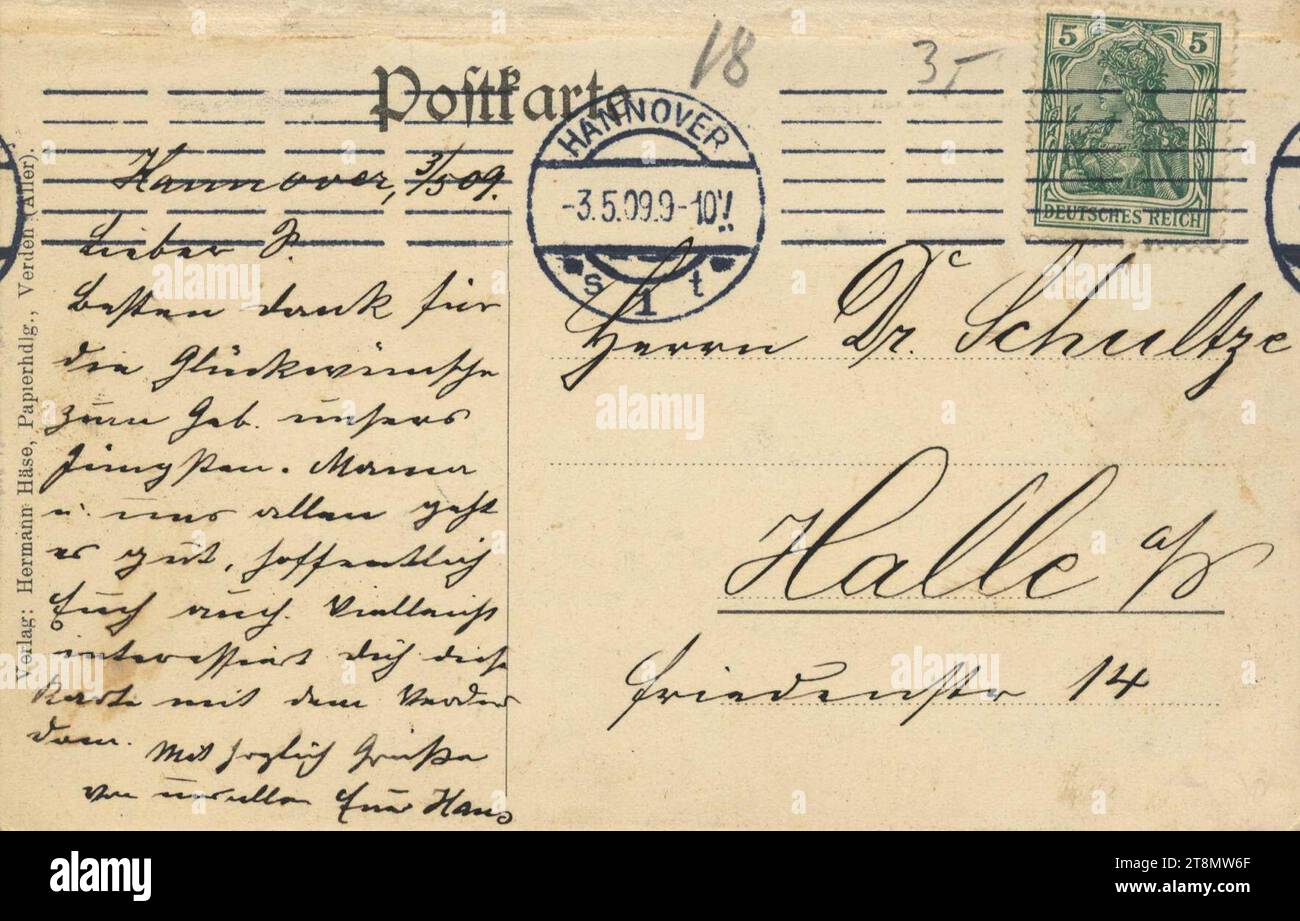 18
3,-
Postkarte
5 5
DEUTSCHES REICH
HANNOVER
-3.5.09.9-10V.
* s 1 t *
Verlag: Hermann Häse, Papierhdlg., Verden (Aller).
Hannover, 3/5 09.
Lieber P.
Besten Dank für
die Glückwünsche
zum Geb. unsers
Jüngsten. Mama
u. uns allen geht
es gut, hoffentlich
Euch auch. Vielleicht
interessiert Dich diese
Karte mit dem Verder
Dom.
Mit herzlich Grüße
von uns allen Euer Hans
Herrn Dr. Schultze
Halle a/S
Friedenstr 14
alamy
alamy
Image ID: 2T8MW6F
www.alamy.com